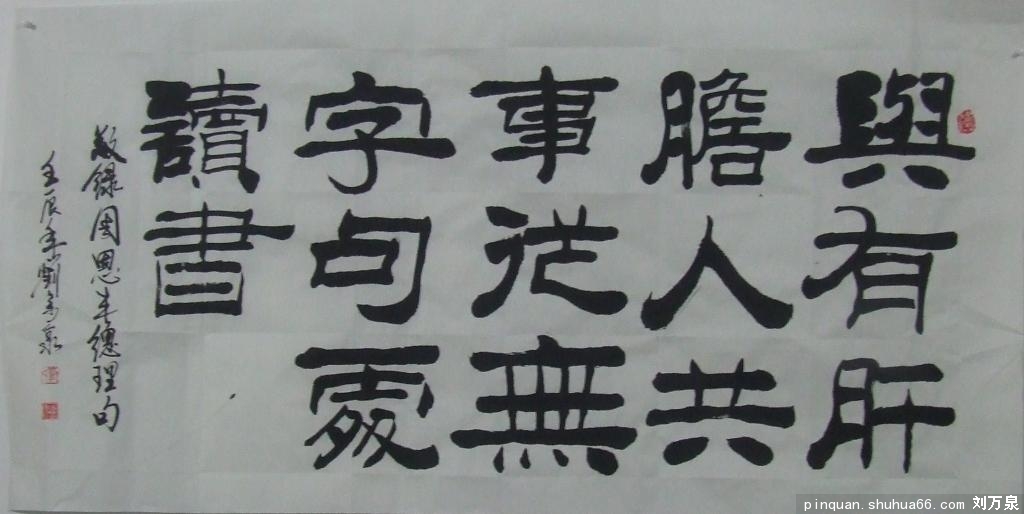 與有肝
膽人共
事從無
字句處
讀書
敬録周恩来總理句
壬辰年劉万泉
pinquan.shuhua66.com 刘万泉